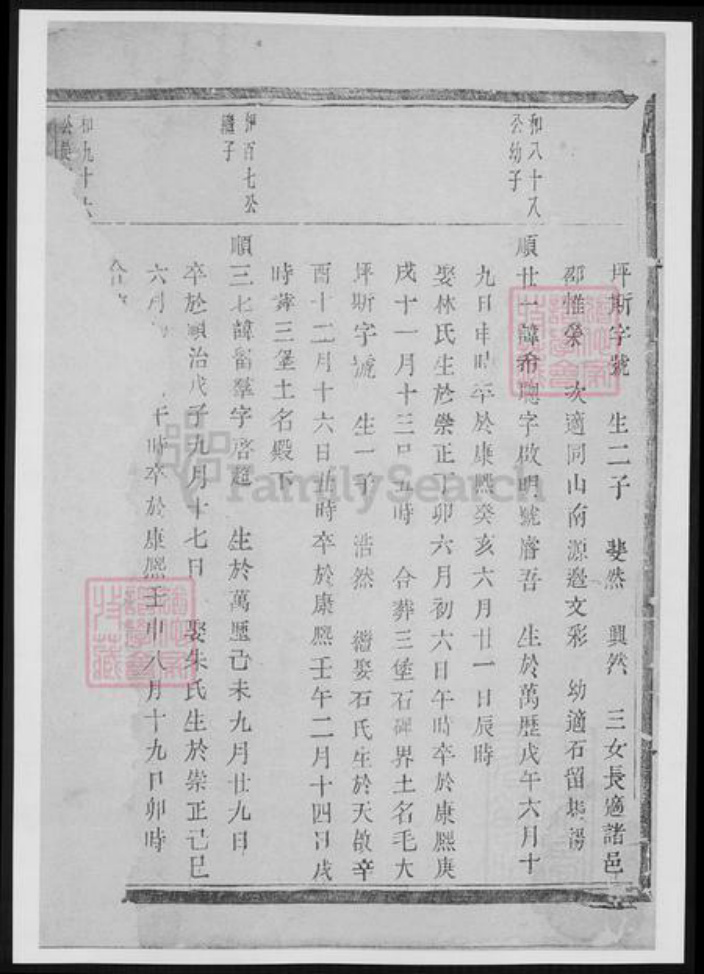 坪斯字號 生二子 斐然 興然 三女長適諸邑
邵惟榮 次適同山南源邊文彩 幼適石留馬湯
和八十八
公幼子
順廿一諱希聰字啟明號睿吾 生於萬歷戊午六月十
九日申時卒於康熙癸亥六月廿一日辰時
娶林氏生於崇正丁卯六月初六日午時卒於康熙庚
戌十一月十三日五時 合葬三堡石碑界土名毛大
坪斯字號 生一子 浩然 繼娶石氏生於天啟辛
酉十二月十六日丑時卒於康熙壬午二月十四日戌
時葬三堡土名殿下
伊百七公
繼子
順三七諱留羣字啓超 生於萬歷己未九月廿九日
卒於順治戊子九月十七日 娶朱氏生於崇正己巳
六月 午時卒於康熙壬申八月十九日卯時
和九十六
公長
合
FamilySearch